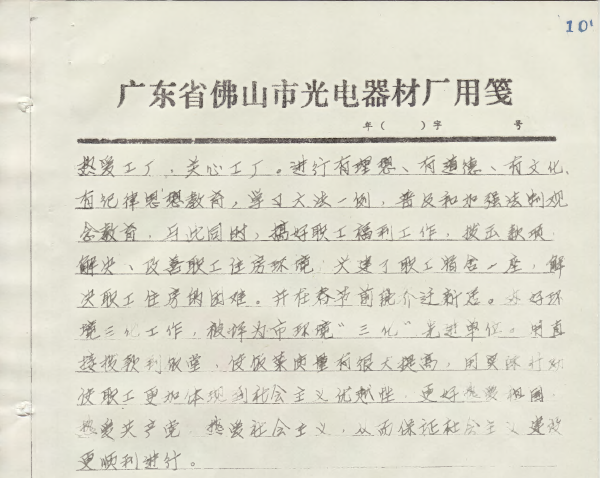 101
广东省佛山市光电器材厂用笺
年( )字 号
热爱工厂,关心工厂。进行有理想、有道德、有文化、
有纪律思想教育,学习大法一例,普及和加强法制观
念教育,与此同时,搞好职工福利工作,拨出款项
解决、改善职工住房环境,兴建了职工宿舍一座,解
决职工住房的困难。并在春节前 迁新送。 好环
境三化工作,被评为市环境“三化”先进单位。 直
接拨款到饭堂,使饭菜质量有很大提高,用实际行动
使职工更加体现到社会主义优越性,更好热爱祖国,
热爱共产党,热爱社会主义,从而保证社会主义建设
更顺利进行。